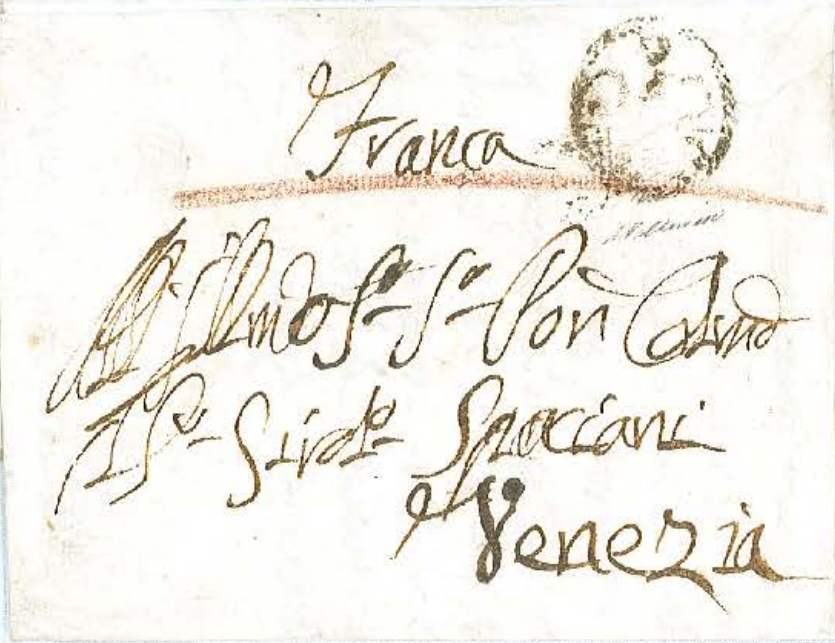 Franca
All Illmo Sr Sr Pon Colmo
Il Sr Girolo Spaciani
Venezia